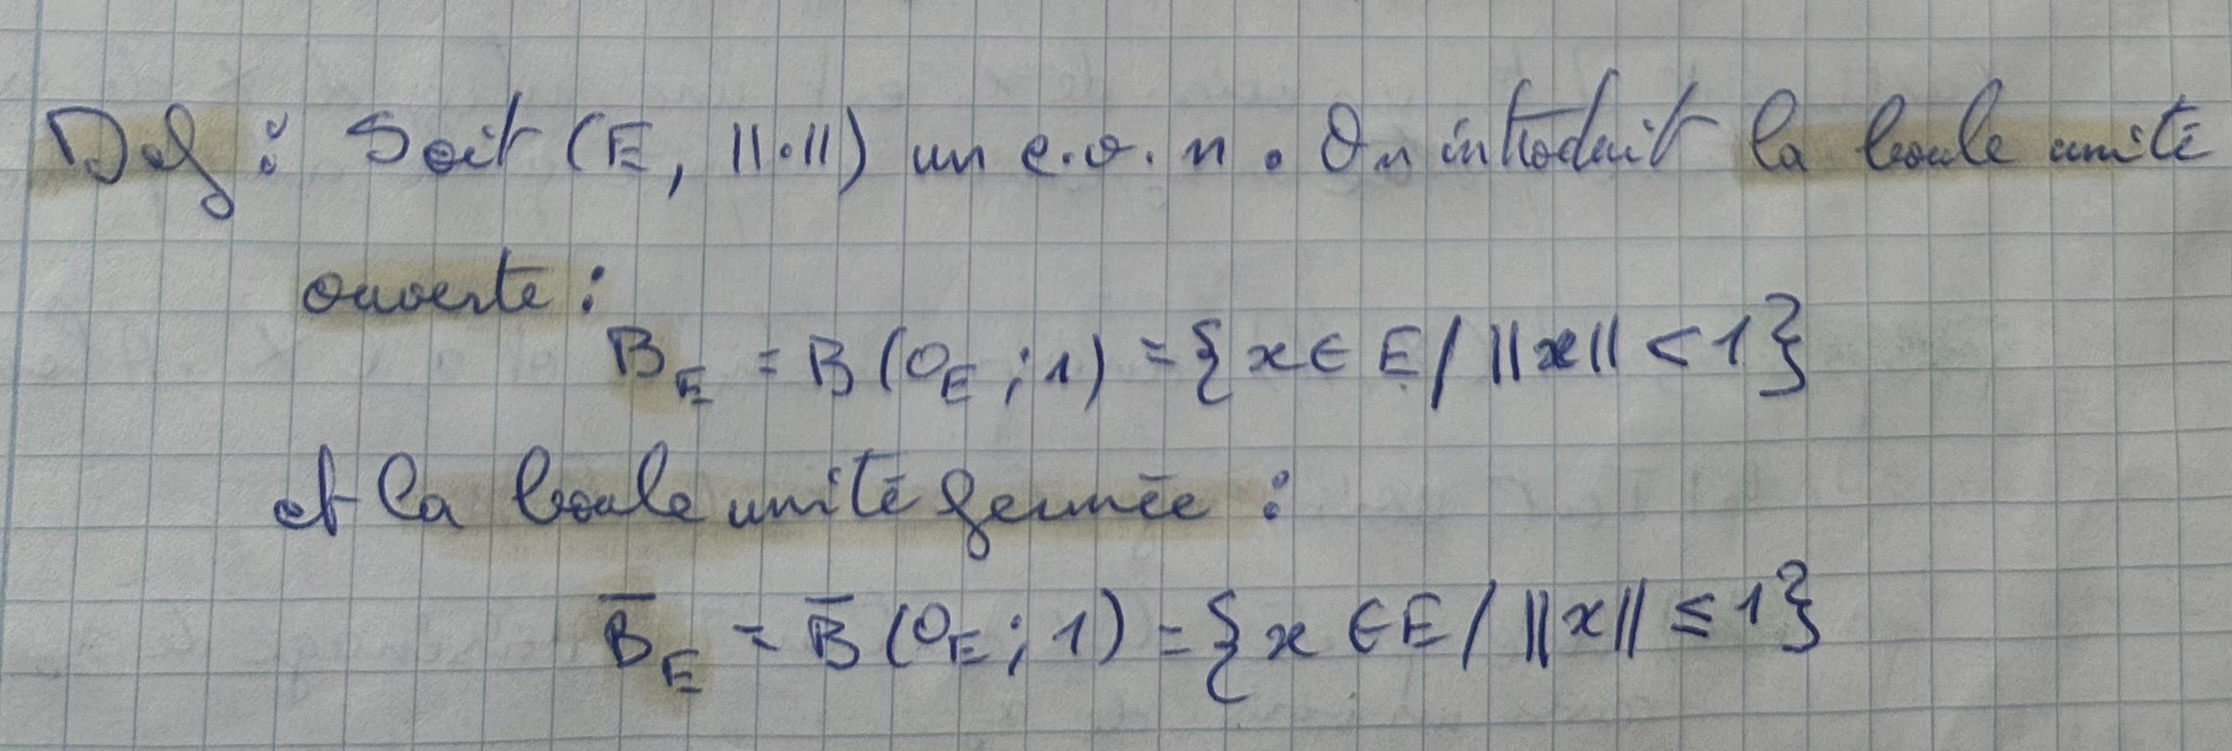 Def : Soit (E, ||·||) un e.v.n. On introduit la boule unité
ouverte :
B_E = B(0_E ; 1) = {x ∈ E / ||x|| < 1}
et la boule unité fermée :
B̅_E = B̅(0_E ; 1) = {x ∈ E / ||x|| ≤ 1}